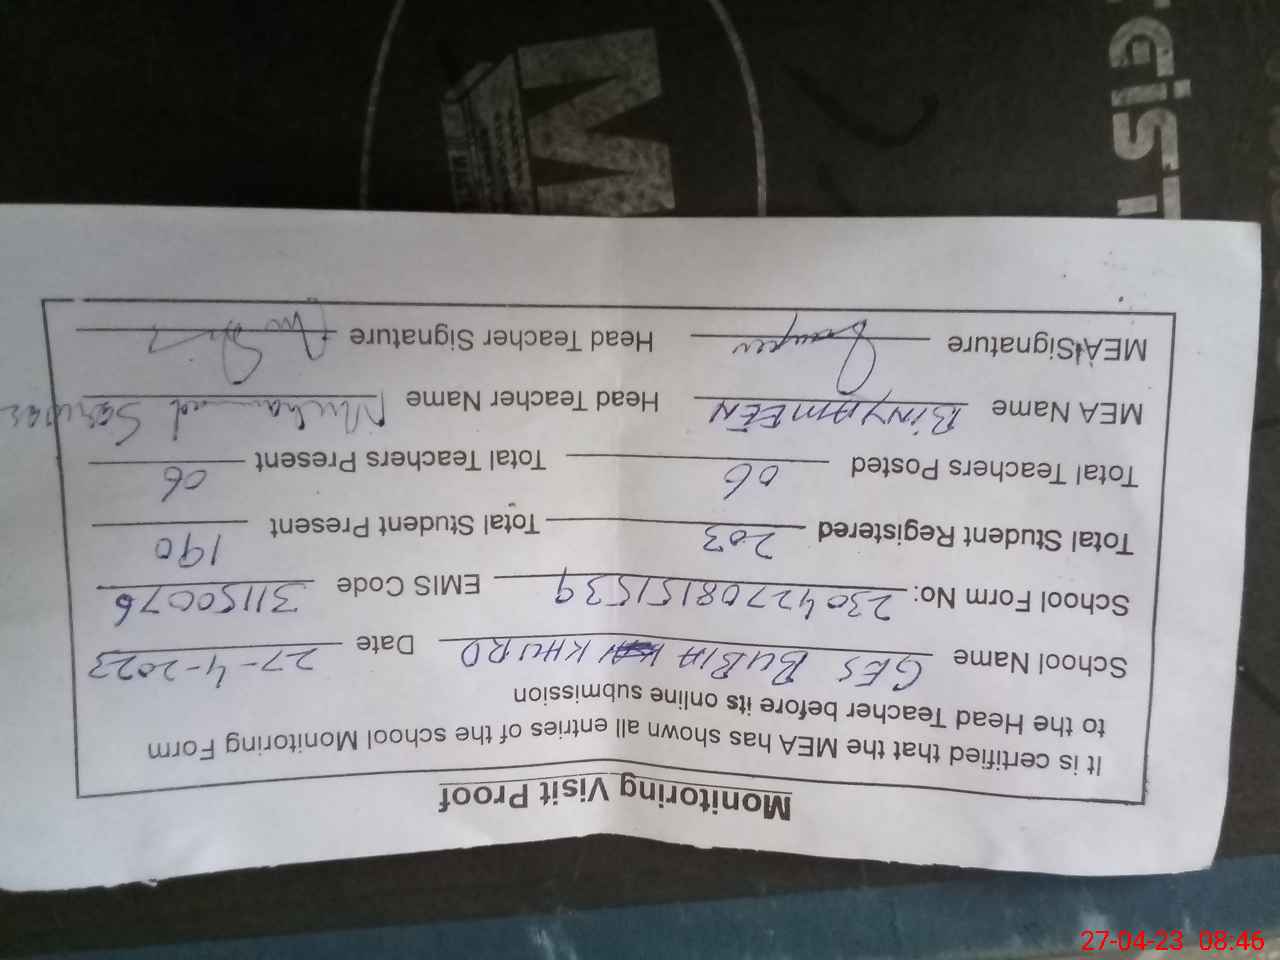 Monitoring Visit Proof
It is certified that the MEA has shown all entries of the school Monitoring Form
to the Head Teacher before its online submission
School Name GES BUBIA KHURD Date 27-4-2023
School Form No: 23042708151539 EMIS Code 31150076
Total Student Registered 203 Total Student Present 190
Total Teachers Posted 06 Total Teachers Present 06
MEA Name BINYAMEEN Head Teacher Name Muhammad Sarwar
MEA Signature Head Teacher Signature
GiST
M
27-04-23 08:46